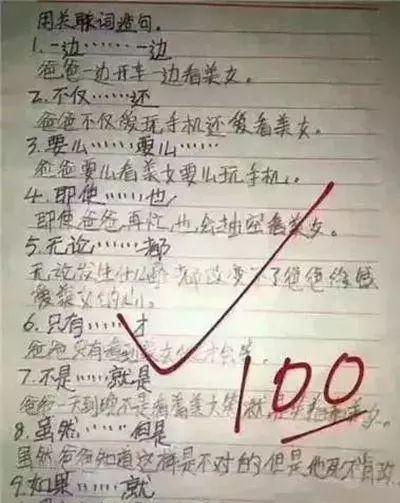 用关联词造句.
1.一边……一边
爸爸一边开车一边看美女。
2.不仅……还
爸爸不仅爱玩手机还爱看美女。
3.要么……要么……
爸爸要么看美女要么玩手机。
4.即使……也
即使爸爸再忙,也会抽空看美女。
5.无论……都
无论发生什么都改变不了爸爸
爱美女的心。
6.只有……才
爸爸只有看到美女才会笑。
7.不是……就是
爸爸一天到晚不是看着美女笑就是
8.虽然……但是
虽然爸爸知道这样是不对的但是他
9.如果……就
100